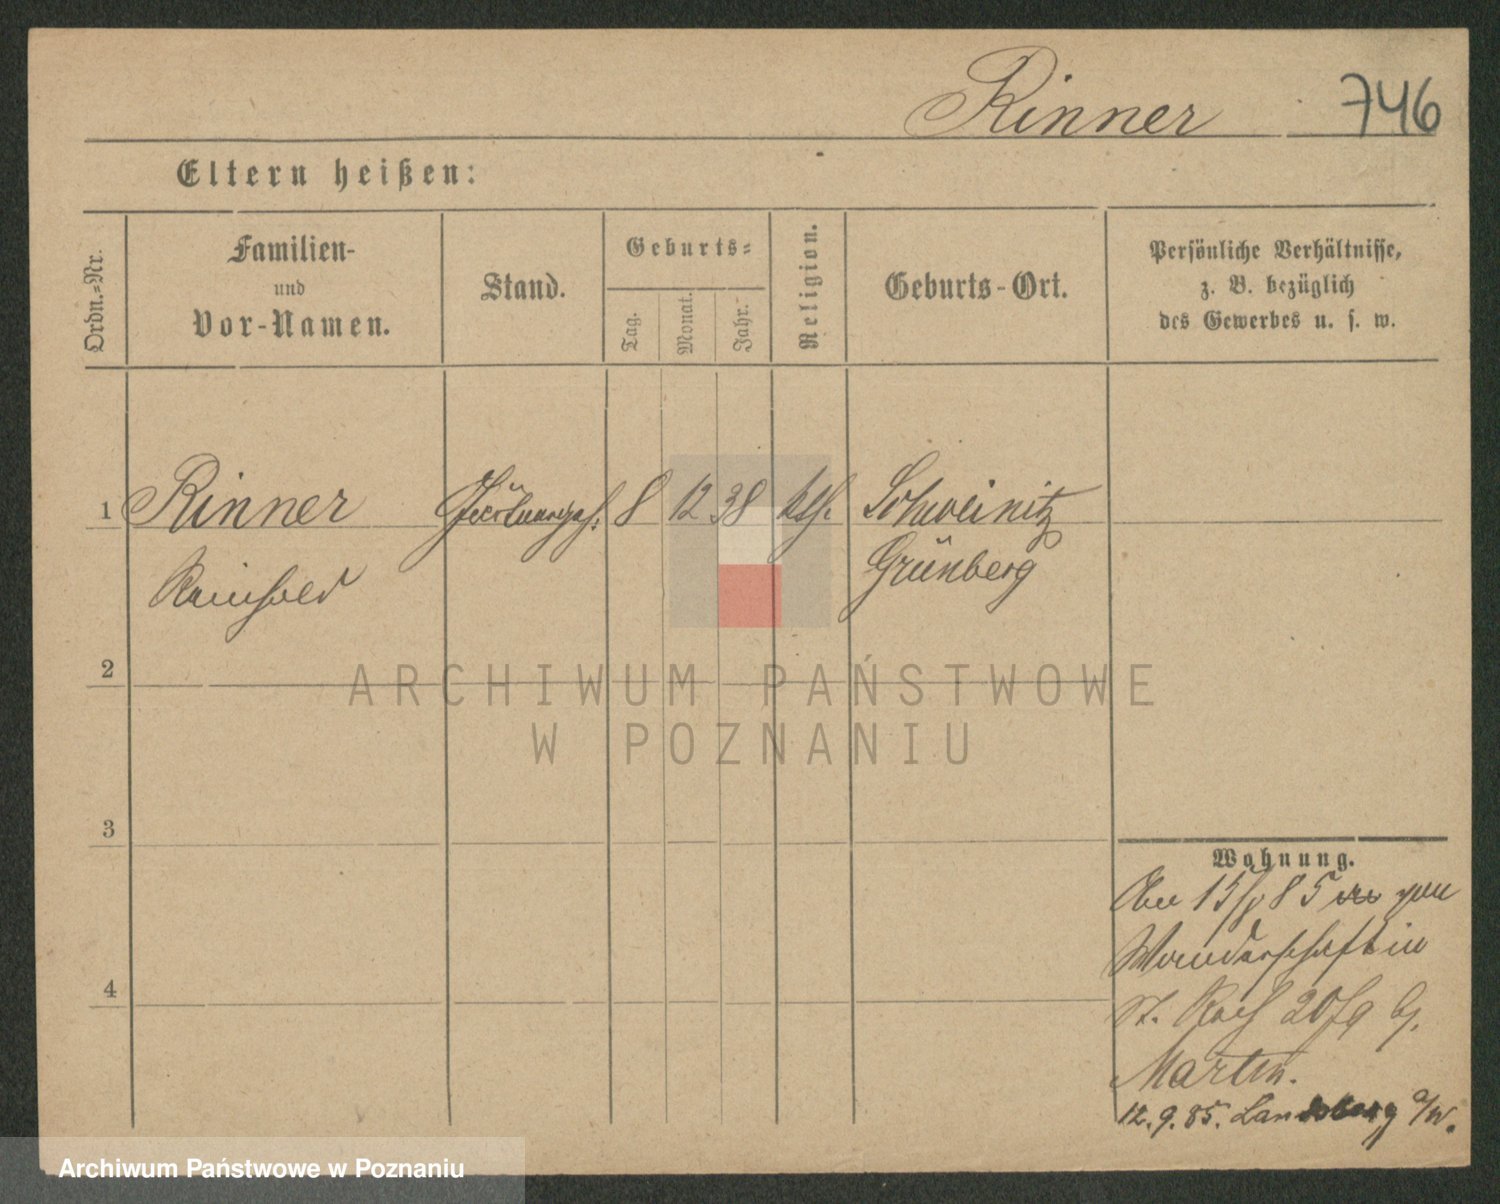 Rinner 746
Eltern heißen:
Ordn.-Nr.
Familien-
und
Vor-Namen.
Stand.
Geburts-
Tag.
Monat.
Jahr.
Religion.
Geburts-Ort.
Persönliche Verhältnisse,
z. B. bezüglich
des Gewerbes u. s. w.
1 Rinner 8 12 38 kth. Schweinitz
Reinhold Grünberg
2
ARCHIWUM PAŃSTWOWE
W POZNANIU
3
Wohnung.
15/8 85 von
Wanderschaft in
St. Roch 20/9 
Martin.
4
12.9.85. Landsberg a/W.
Archiwum Państwowe w Poznaniu